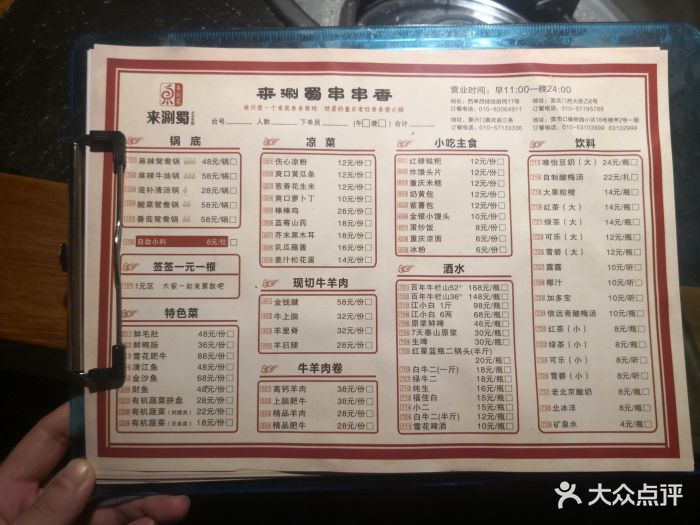 来涮蜀
来涮蜀串串香
我只是一个来卖串串香哒 地道的重庆老灶串串香火锅
台号 人数 下单员 (午 晚 ) 合计
营业时间：早11:00一晚24:00
地址：西单西绒线胡同17号
订餐电话：010-83064911
地址：
订餐电话：010-57133336
地址：
订餐电话：010-57195789
地址：
订餐电话：010-63103999 63102999
锅底
麻辣鸳鸯锅 48元/锅
麻辣牛油锅 58元/锅
滋补清汤锅 28元/锅
酸菜鸳鸯锅 58元/锅
番茄鸳鸯锅 58元/锅
自助小料 6元/位
签签一元一根
1元区 大家一起来算数吧
特色菜
鲜毛肚 48元/份
鲜鸭肠 36元/份
雪花肥牛 88元/份
清江鱼 48元/份
金沙鱼 68元/份
财鱼 48元/份
有机蔬菜拼盘 28元/份
有机蔬菜 22元/份
有机蔬菜 18元/份
凉菜
伤心凉粉 12元/份
爽口黄瓜条 12元/份
葱香花生米 12元/份
爽口萝卜丁 10元/份
棒棒鸡 28元/份
蓝莓山药 18元/份
芥末黑木耳 18元/份
乳瓜蘸酱 16元/份
姜汁松花蛋 14元/份
现切牛羊肉
金钱腱 58元/份
牛上脑 32元/份
羊里脊 32元/份
羊后腿 28元/份
牛羊肉卷
高钙羊肉 38元/份
上脑肥牛 38元/份
精品羊肉 28元/份
精品肥牛 28元/份
小吃主食
红糖糍粑 12元/份
炸馒头片 12元/份
重庆米糕 12元/份
奶黄包 12元/份
紫薯包 12元/份
金银小馒头 10元/份
蛋炒饭 8元/份
重庆凉面 6元/份
冰粉 6元/份
酒水
百年牛栏山52° 168元/瓶
百年牛栏山36° 148元/瓶
江小白 1斤 98元/瓶
江小白 6两 68元/瓶
原浆鲜啤 46元/瓶
7天泰山原浆 30元/瓶
生啤 30元/瓶
红星蓝瓶二锅头(半斤)
20元/瓶
白牛二(一斤) 18元/瓶
绿牛二 18元/瓶
纯生 16元/瓶
福佳白 15元/瓶
小二 15元/瓶
白牛二(半斤) 12元/瓶
雪花啤酒 10元/瓶
饮料
唯怡豆奶（大） 24元/瓶
自制酸梅汤 22元/扎
大果粒橙 14元/瓶
红茶（大） 14元/瓶
绿茶（大） 14元/瓶
可乐（大） 12元/瓶
雪碧（大） 12元/瓶
露露 10元/听
椰汁 10元/听
加多宝 10元/听
信远斋酸梅汤 10元/瓶
红茶（小） 8元/瓶
绿茶（小） 8元/瓶
可乐（小） 8元/听
雪碧（小） 8元/听
老北京酸奶 8元/瓶
北冰洋 8元/瓶
矿泉水 4元/瓶
大众点评